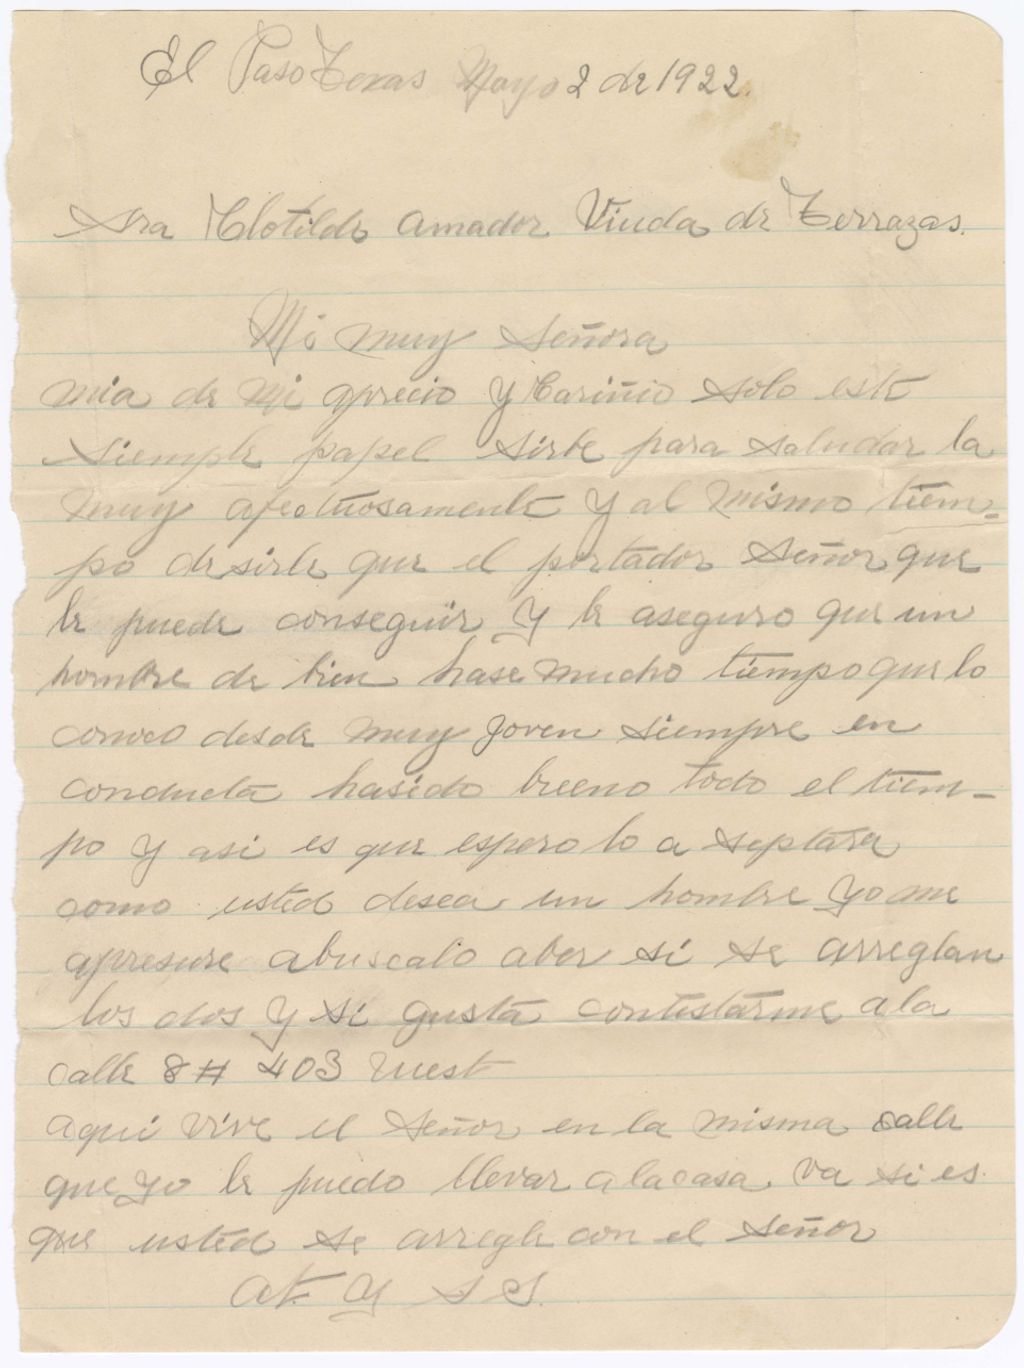 El Paso Texas Mayo 2 de 1922.
Sra Clotilde Amador Viuda de Terrazas.
Mi muy Señora
mia de mi aprecio y Cariñio solo este
siemple papel sirbe para saludar la
muy afectuosamente y al mismo tiem-
po desirle que el portador Señor que
le puede conseguir y le aseguro que un
hombre de bien hase mucho tiempo que lo
conoco desde muy joven siempre en
conducta hasido bueno todo el tiem-
po y asi es que espero lo a septara
como usted desea un hombre yo me
apresure abuscalo aber si se arreglan
los dos y si gusta contestarme a la
calle 8 # 403 West
aqui vive el Señor en la misma calle
que yo le puedo llevar a la casa va si es
que usted se arregle con el Señor
At. y S S.